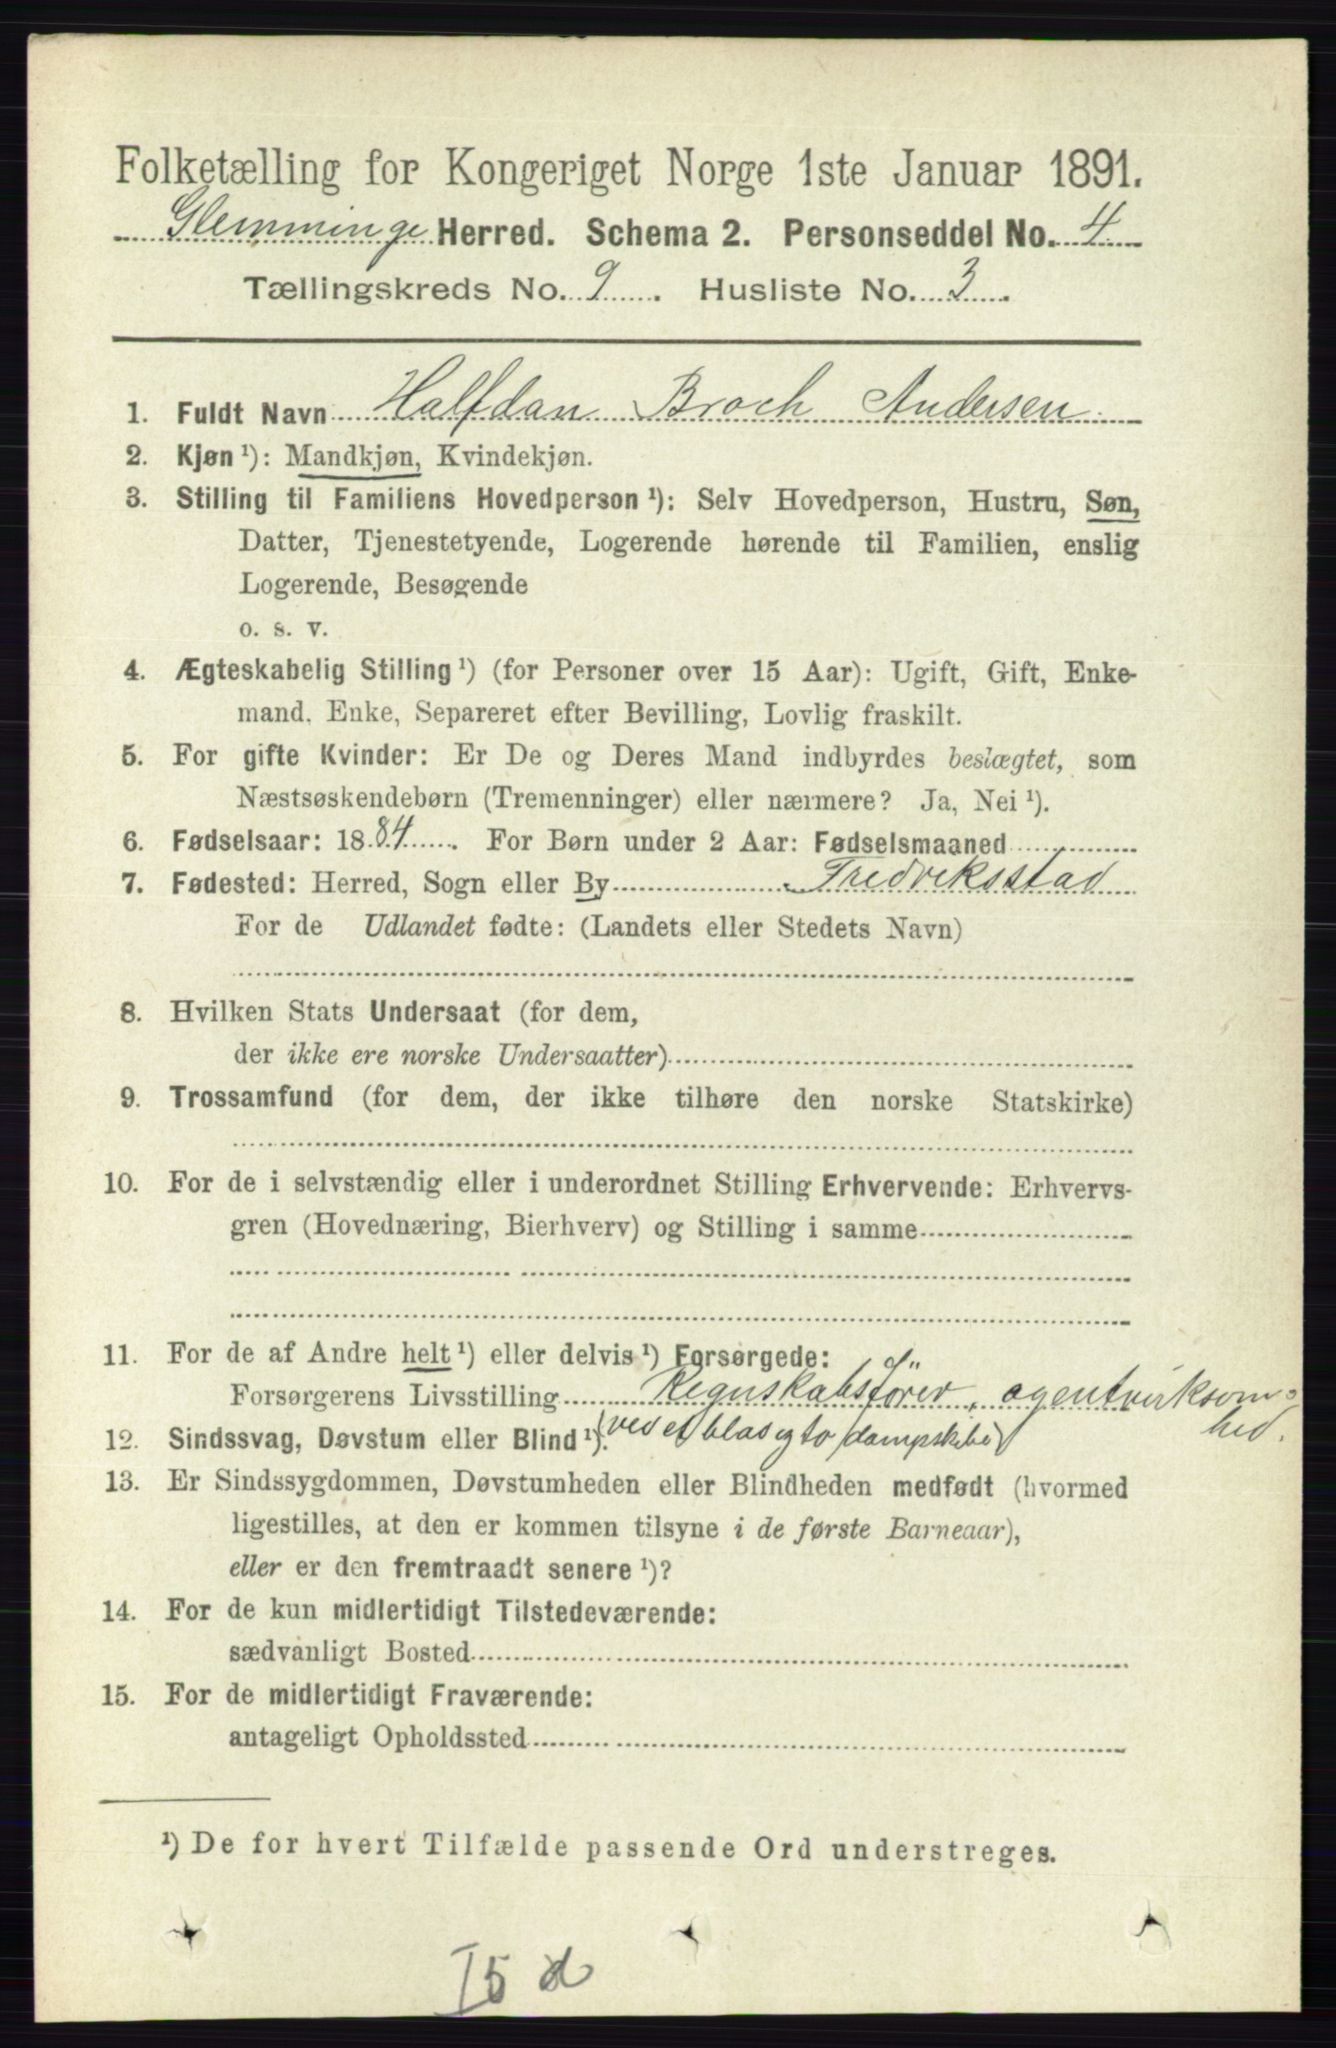 Folketælling for Kongeriget Norge 1ste Januar 1891.
Glemminge Herred. Schema 2. Personseddel No. 4
Tællingskreds No. 9. Husliste No. 3.
1. Fuldt Navn Halfdan Broch Andersen
2. Kjøn ¹): Mandkjøn, Kvindekjøn.
3. Stilling til Familiens Hovedperson ¹): Selv Hovedperson, Hustru, Søn,
Datter, Tjenestetyende, Logerende hørende til Familien, enslig
Logerende, Besøgende
o. s. v.
4. Ægteskabelig Stilling ¹) (for Personer over 15 Aar): Ugift, Gift, Enke-
mand, Enke, Separeret efter Bevilling, Lovlig fraskilt.
5. For gifte Kvinder: Er De og Deres Mand indbyrdes beslægtet, som
Næstsøskendebørn (Tremenninger) eller nærmere? Ja, Nei ¹).
6. Fødselsaar: 1884. For Børn under 2 Aar: Fødselsmaaned
7. Fødested: Herred, Sogn eller By Fredriksstad
For de Udlandet fødte: (Landets eller Stedets Navn)
8. Hvilken Stats Undersaat (for dem,
der ikke ere norske Undersaatter)
9. Trossamfund (for dem, der ikke tilhøre den norske Statskirke)
10. For de i selvstændig eller i underordnet Stilling Erhvervende: Erhvervs-
gren (Hovednæring, Bierhverv) og Stilling i samme
11. For de af Andre helt ¹) eller delvis ¹) Forsørgede:
Forsørgerens Livsstilling Regnskabsfører, agentvirksom-
hed.
12. Sindssvag, Døvstum eller Blind ¹). (ved et dampskibe)
13. Er Sindssygdommen, Døvstumheden eller Blindheden medfødt (hvormed
ligestilles, at den er kommen tilsyne i de første Barneaar),
eller er den fremtraadt senere ¹)?
14. For de kun midlertidigt Tilstedeværende:
sædvanligt Bosted
15. For de midlertidigt Fraværende:
antageligt Opholdssted
¹) De for hvert Tilfælde passende Ord understreges.
I5 d